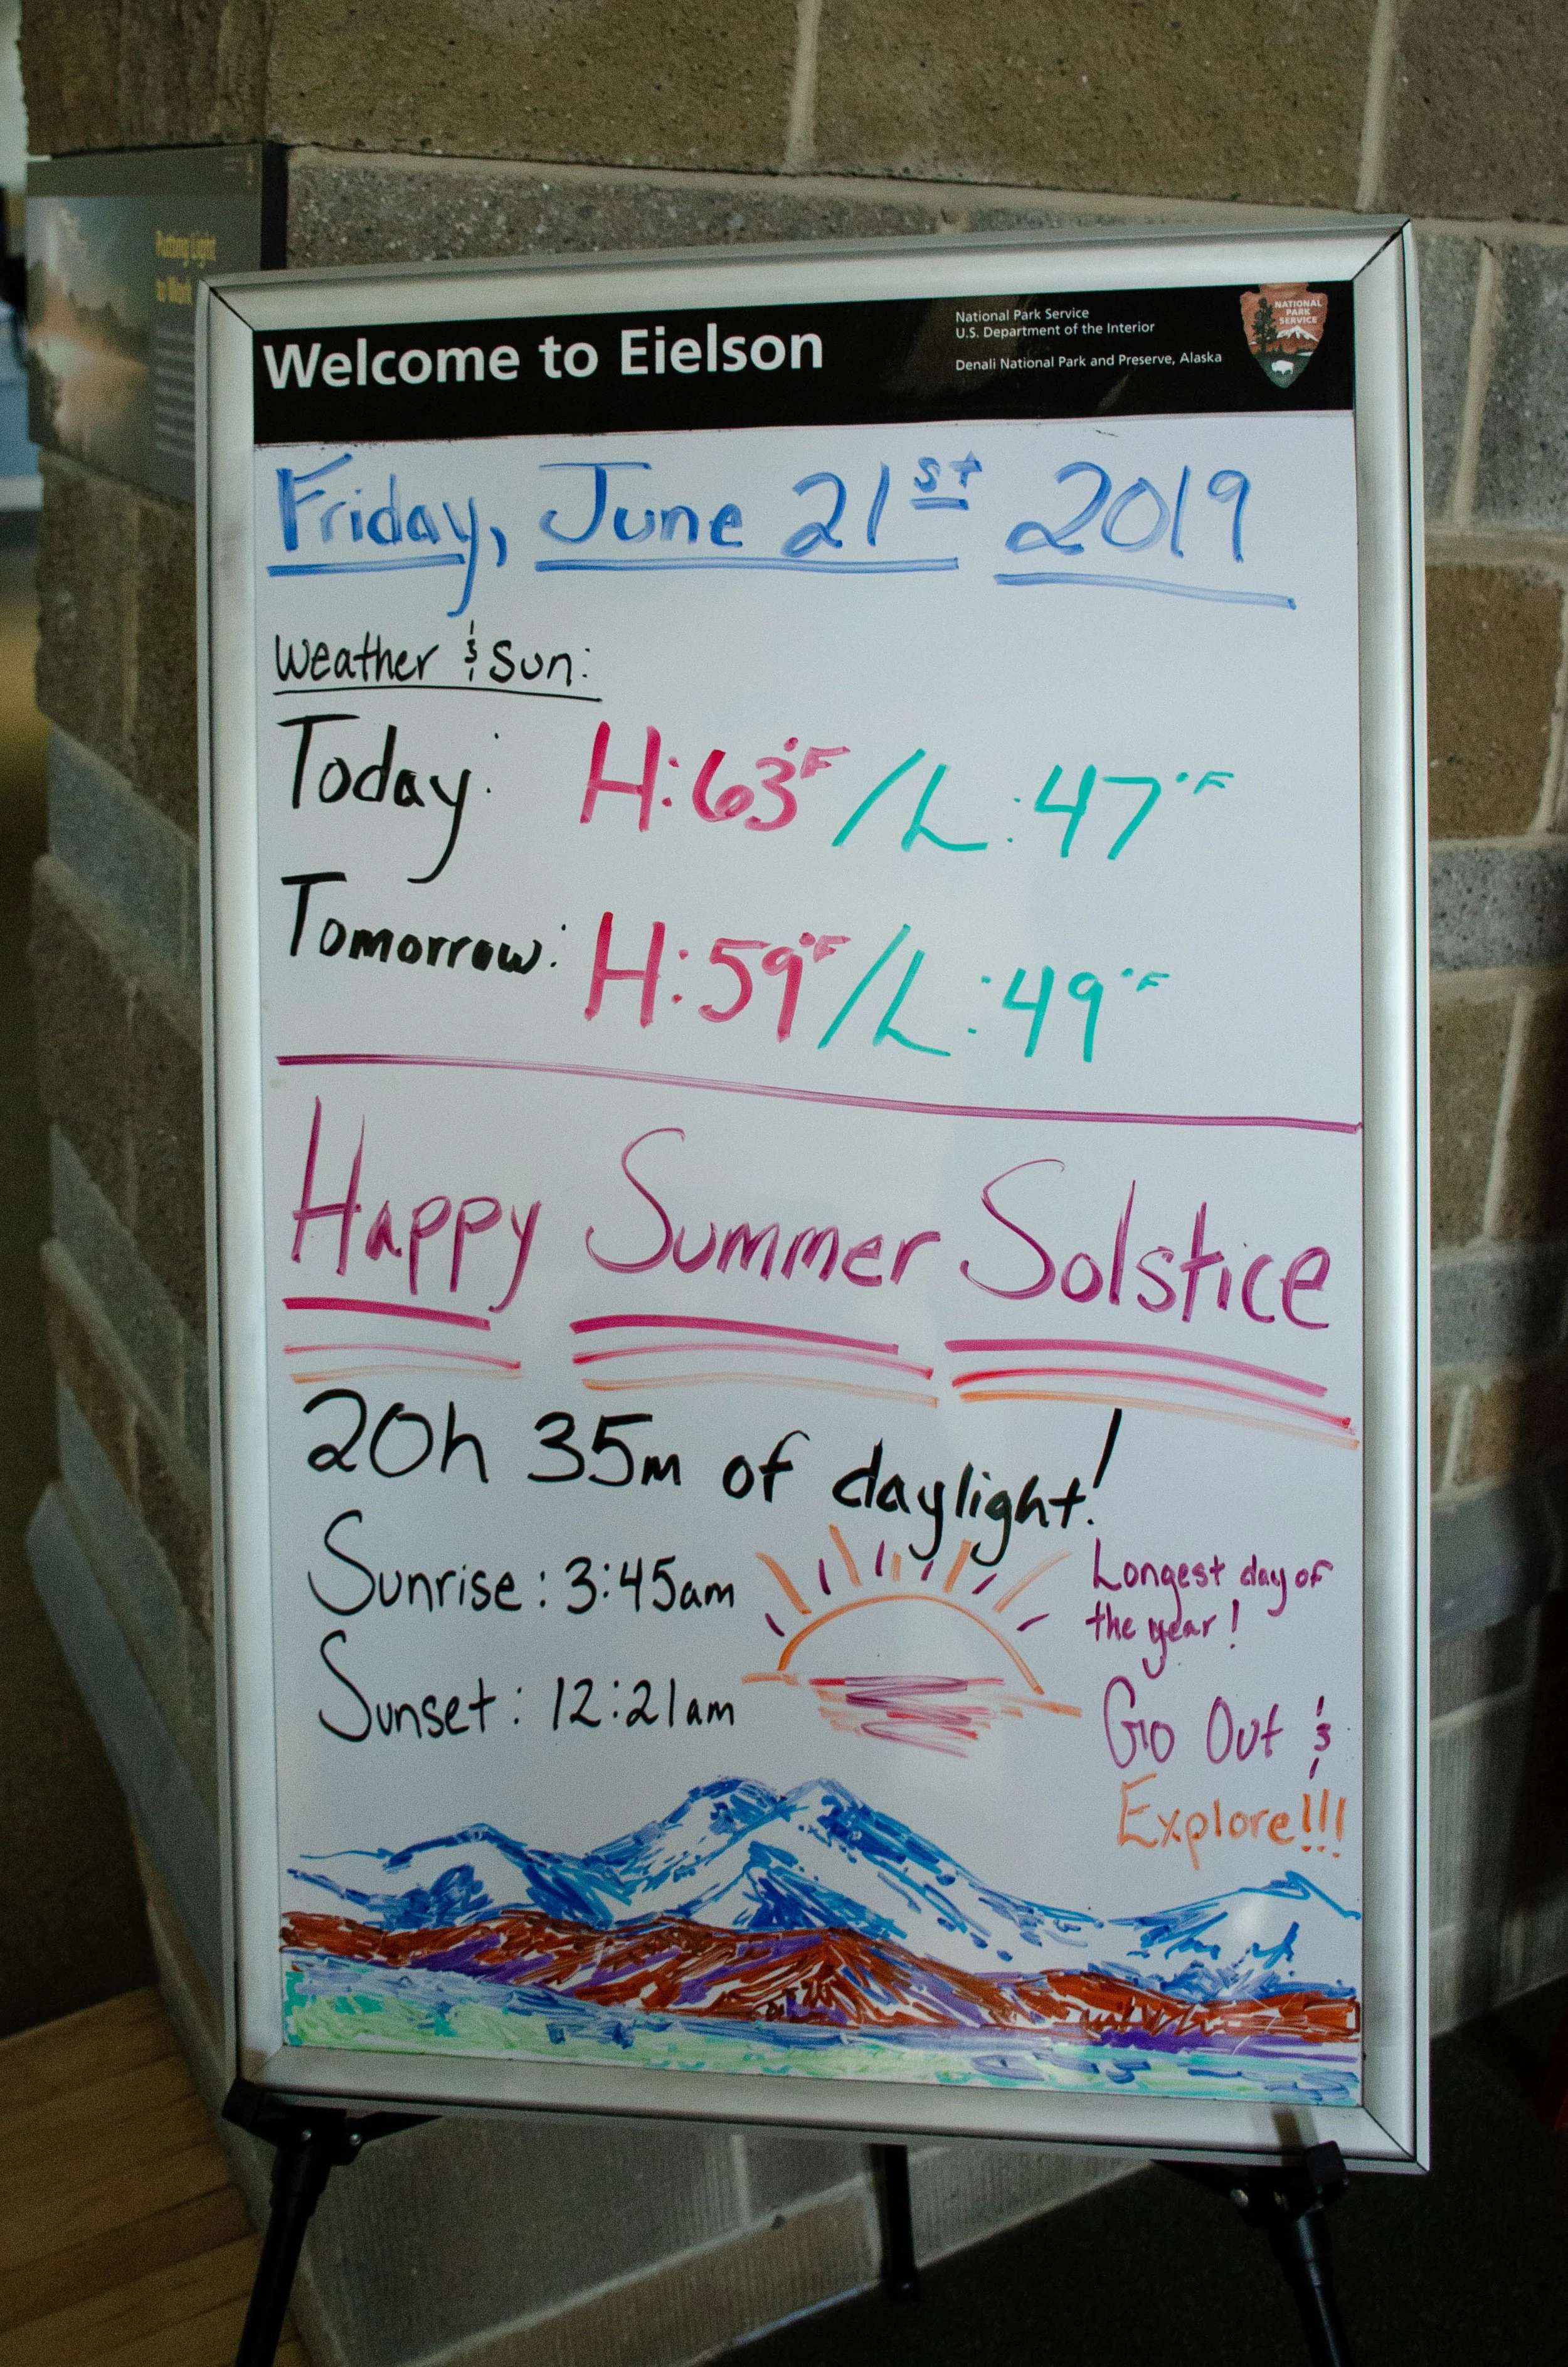 Putting Light
to Work
Welcome to Eielson
National Park Service
U.S. Department of the Interior
Denali National Park and Preserve, Alaska
NATIONAL
PARK
SERVICE
Friday, June 21st 2019
Weather & Sun:
Today: H:63°F / L:47°F
Tomorrow: H:59°F / L:49°F
Happy Summer Solstice
20h 35m of daylight!
Sunrise: 3:45am
Sunset: 12:21am
Longest day of
the year!
Go Out &
Explore!!!